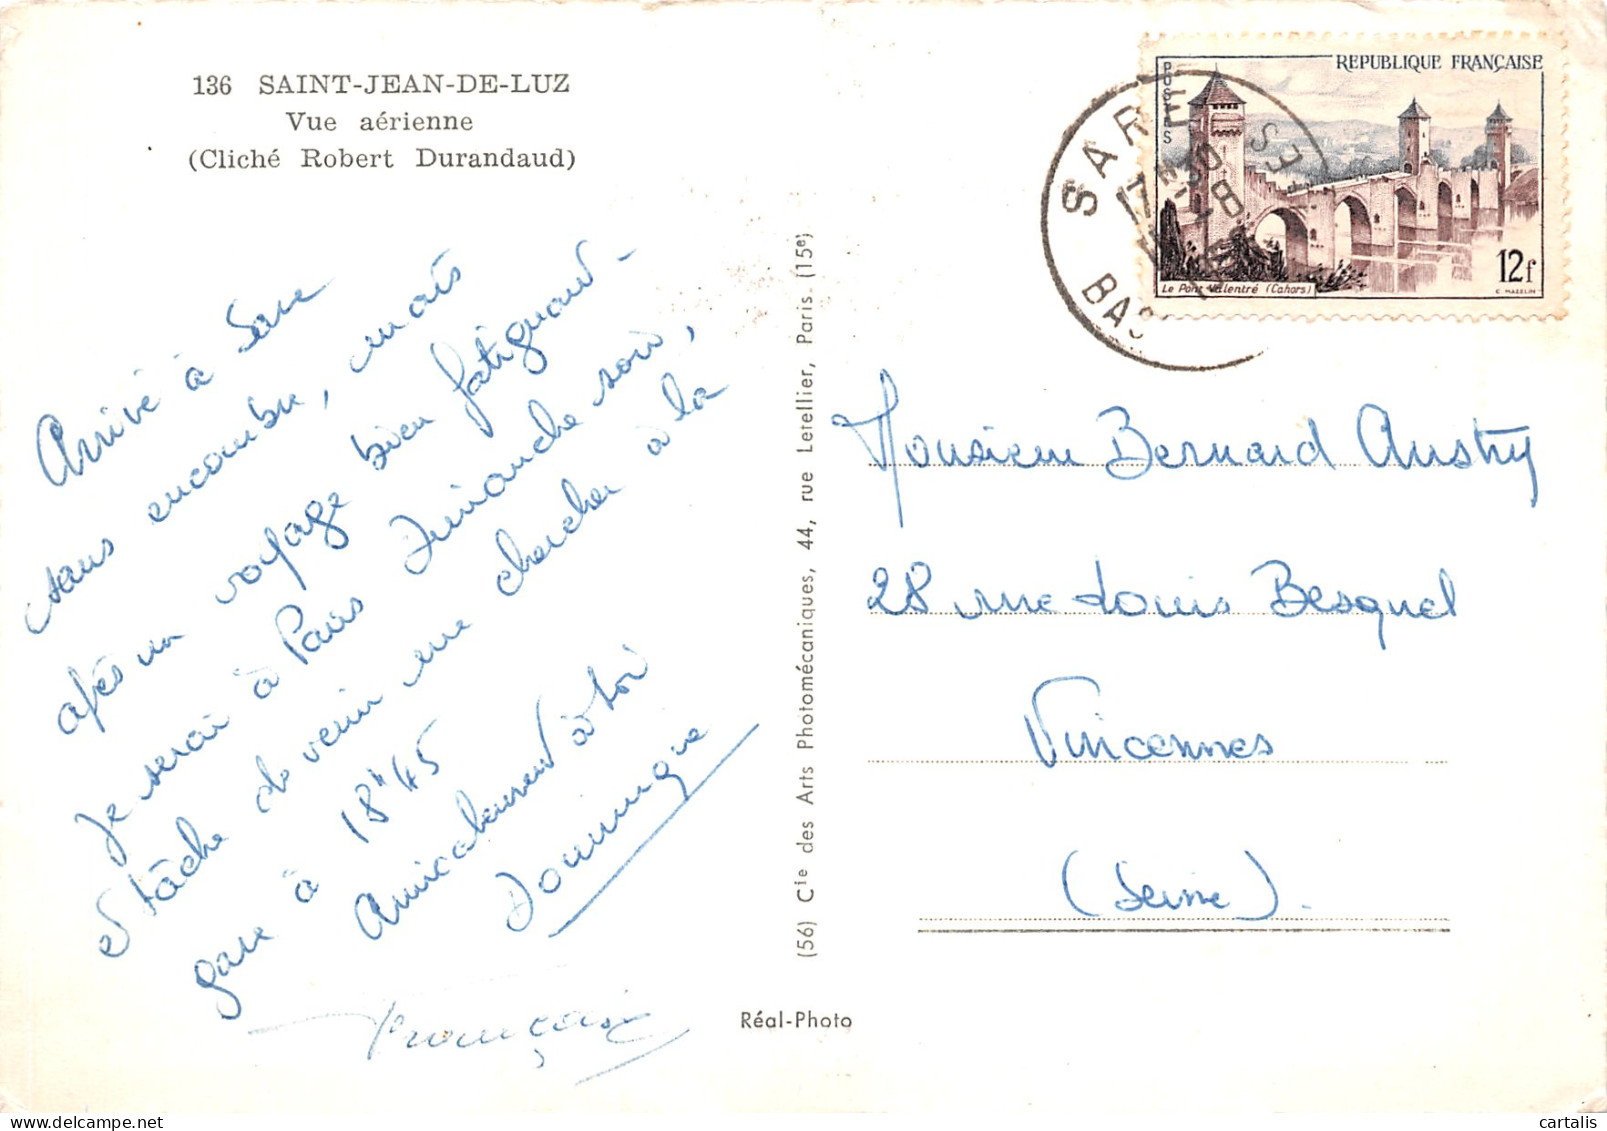 136 SAINT-JEAN-DE-LUZ
Vue aérienne
(Cliché Robert Durandaud)
Arrivé à Sare
sans encombre, mais
après un voyage bien fatiguant.
Je serai à Paris Dimanche soir,
et tâche de venir me chercher à la
gare à 18h45
Amicalement à toi
Dominique
Françoise
(56) Cie des Arts Photomécaniques, 44, rue Letellier, Paris (15e)
Réal-Photo
REPUBLIQUE FRANÇAISE
POSTES
Le Pont Valentré (Cahors)
12f
C. MAZELIN
SARE
17H30
18
BASSES
Monsieur Bernard Anstry
28 rue Louis Besquel
Vincennes
(Seine).
cartalis